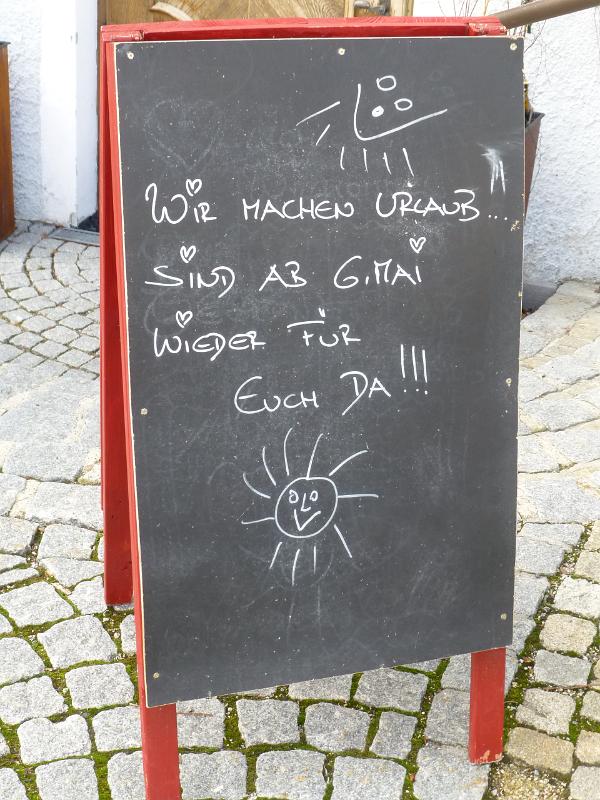 WiR MACHEN URLAUB...
SiND AB 6.MAi
WiEDER FÜR
EUCH DA!!!